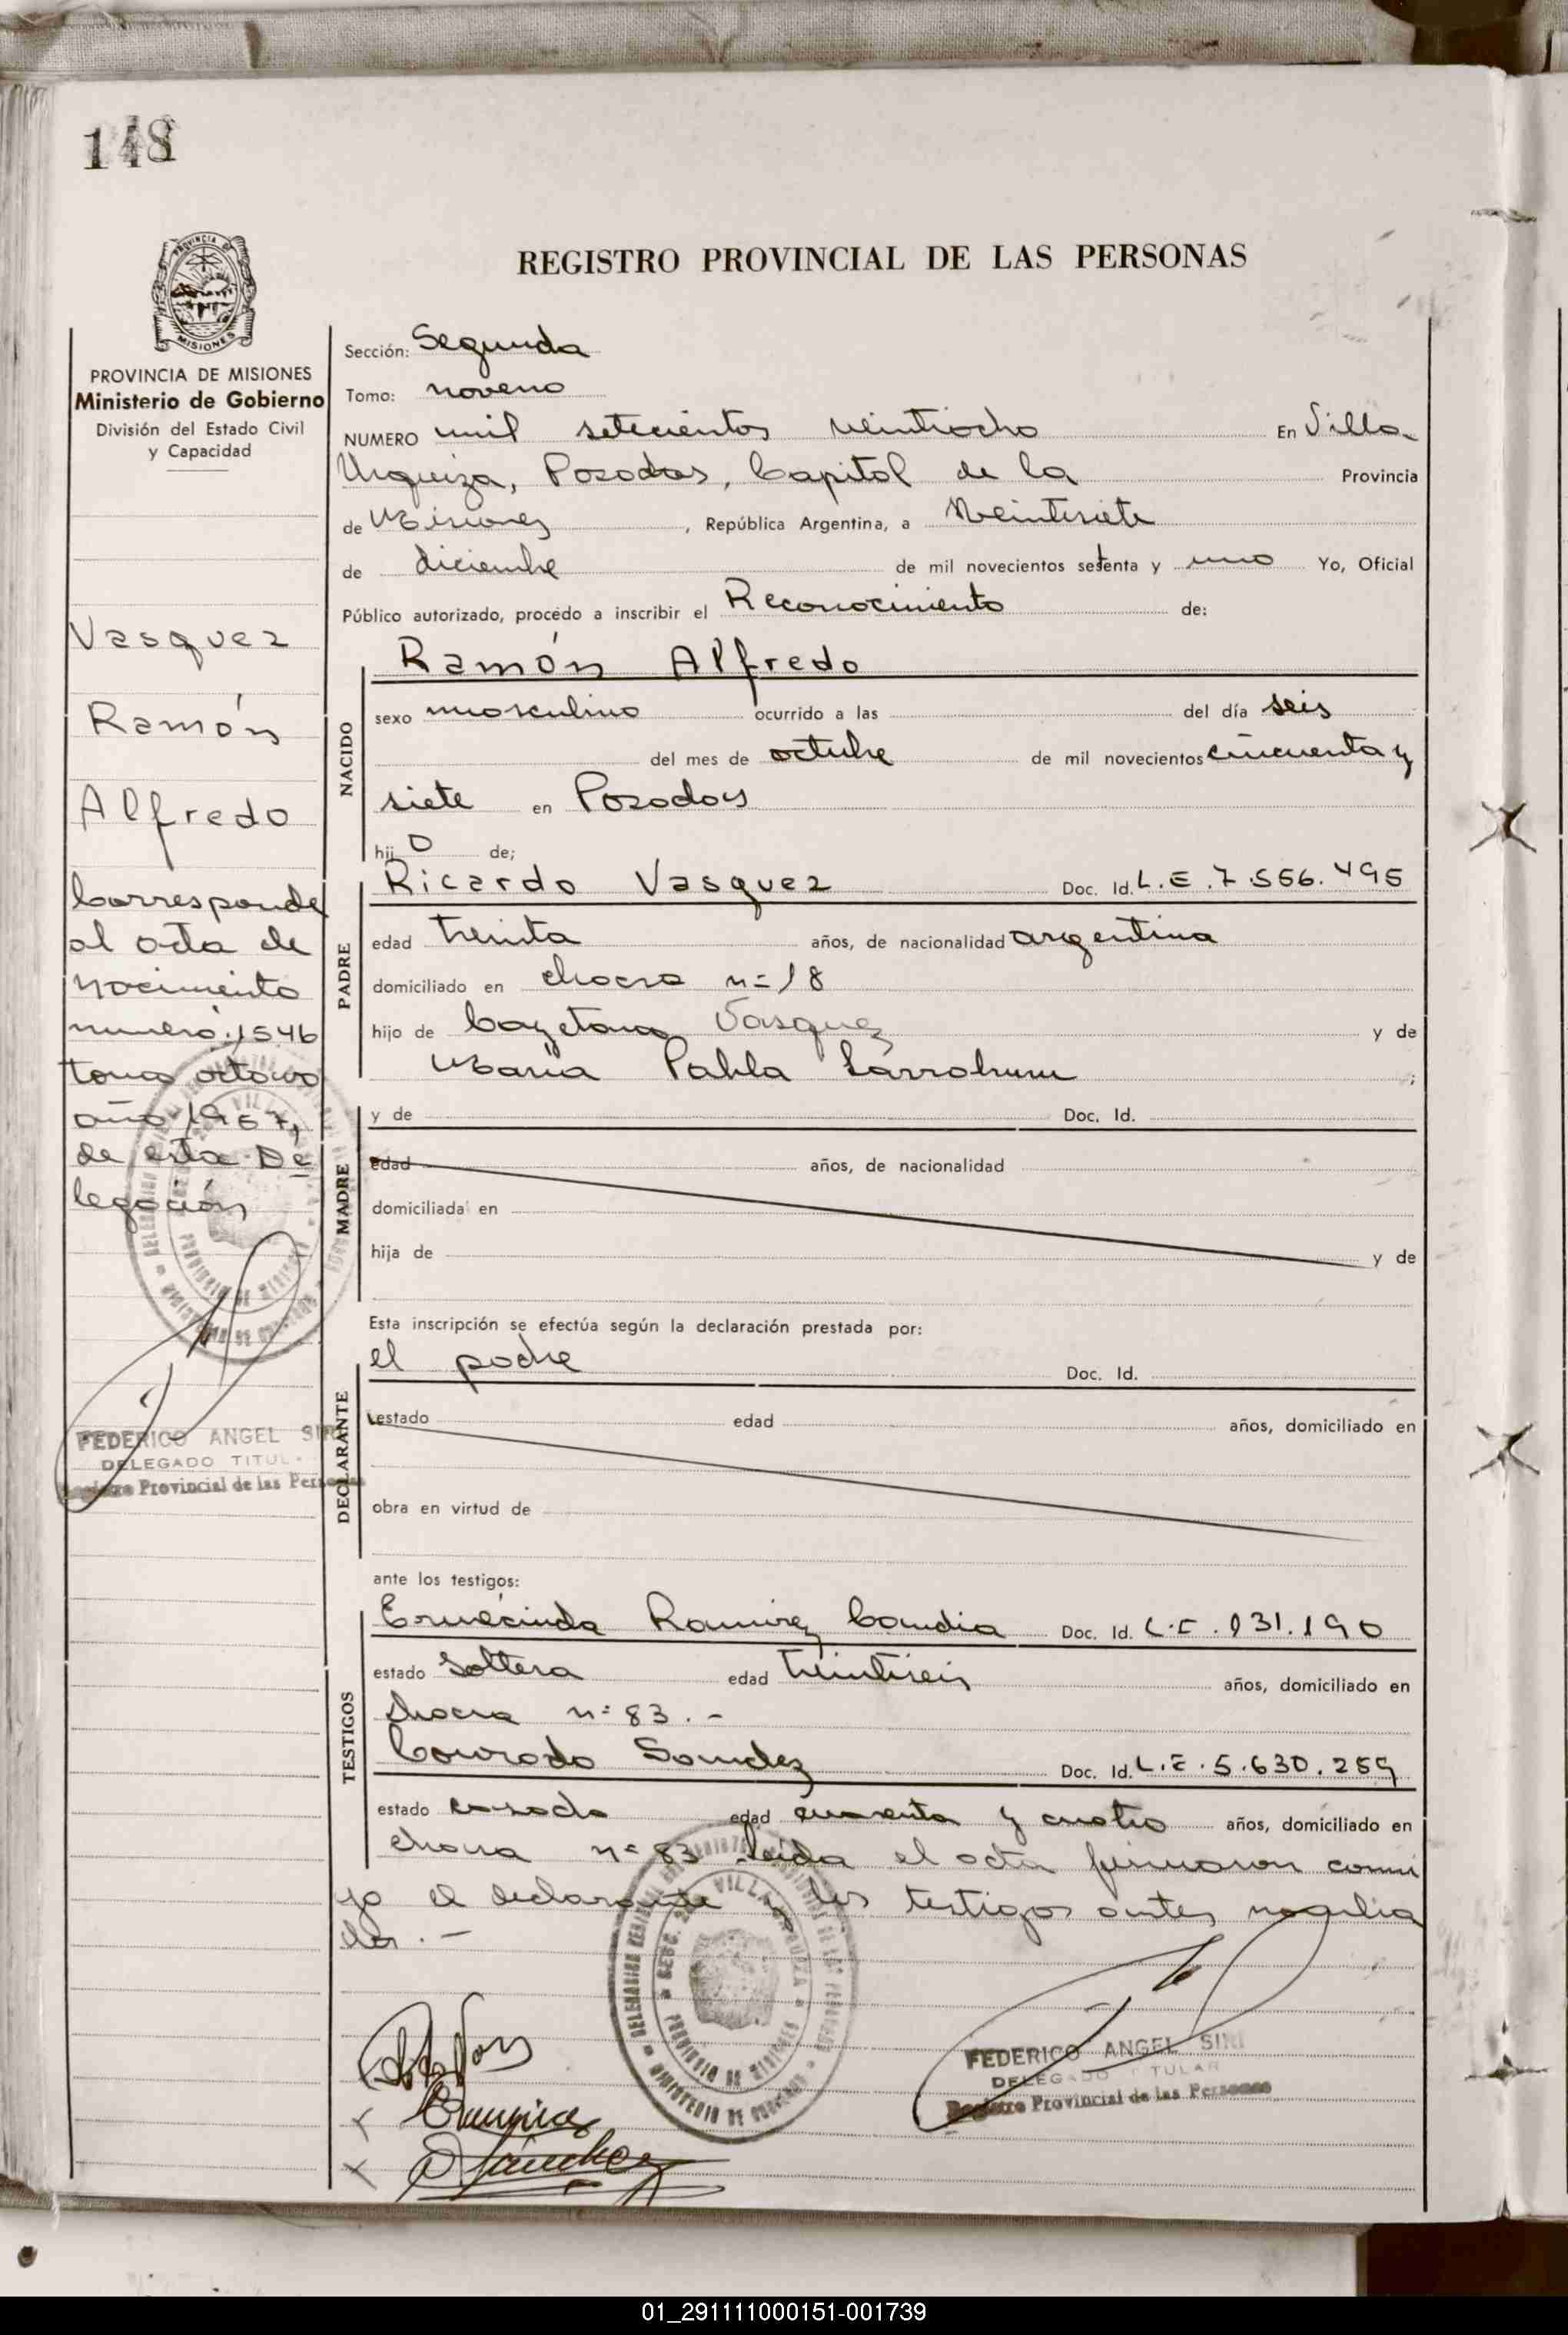 148
REGISTRO PROVINCIAL DE LAS PERSONAS
PROVINCIA DE MISIONES
Ministerio de Gobierno
División del Estado Civil
y Capacidad
Vasquez
Ramón
Alfredo
Corresponde
al acta de
nacimiento
numero 1546
tomo octavo
año 1957,
de esta De
legación
FEDERICO ANGEL SIRI
DELEGADO TITUL
Registro Provincial de las Personas
Sección: Segunda
Tomo: noveno
NUMERO mil setecientos veintiocho En Villa
Urquiza, Posadas, Capital de la Provincia
de Misiones, República Argentina, a veintisiete
de diciembre de mil novecientos setenta y uno Yo, Oficial
Público autorizado, procedo a inscribir el Reconocimiento de:
NACIDO
Ramón Alfredo
sexo masculino ocurrido a las del día seis
del mes de octubre de mil novecientos cincuenta y
siete en Posadas
hijo de;
PADRE
Ricardo Vasquez Doc. Id. L.E. 7.556.495
edad treinta años, de nacionalidad argentina
domiciliado en chacra n= 18
hijo de Cayetano Vasquez y de
María Pabla ;
MADRE
y de Doc. Id.
edad años, de nacionalidad
domiciliada en
hija de y de
Esta inscripción se efectúa según la declaración prestada por:
DECLARANTE
el padre Doc. Id.
estado edad años, domiciliado en
obra en virtud de
ante los testigos:
TESTIGOS
Ermecinda Ramirez Candia Doc. Id. L.C. 131.190
estado soltera edad años, domiciliado en
chacra n= 83.-
Conrado Doc. Id. L.E. 5.630.259
estado casado edad cuarenta y cuatro años, domiciliado en
chacra n= 83 leída el acta firmaron conmi
go el declarante y los testigos antes
dos.-
FEDERICO ANGEL SIRI
DELEGADO TITULAR
Registro Provincial de las Personas
Sánchez
01_291111000151-001739